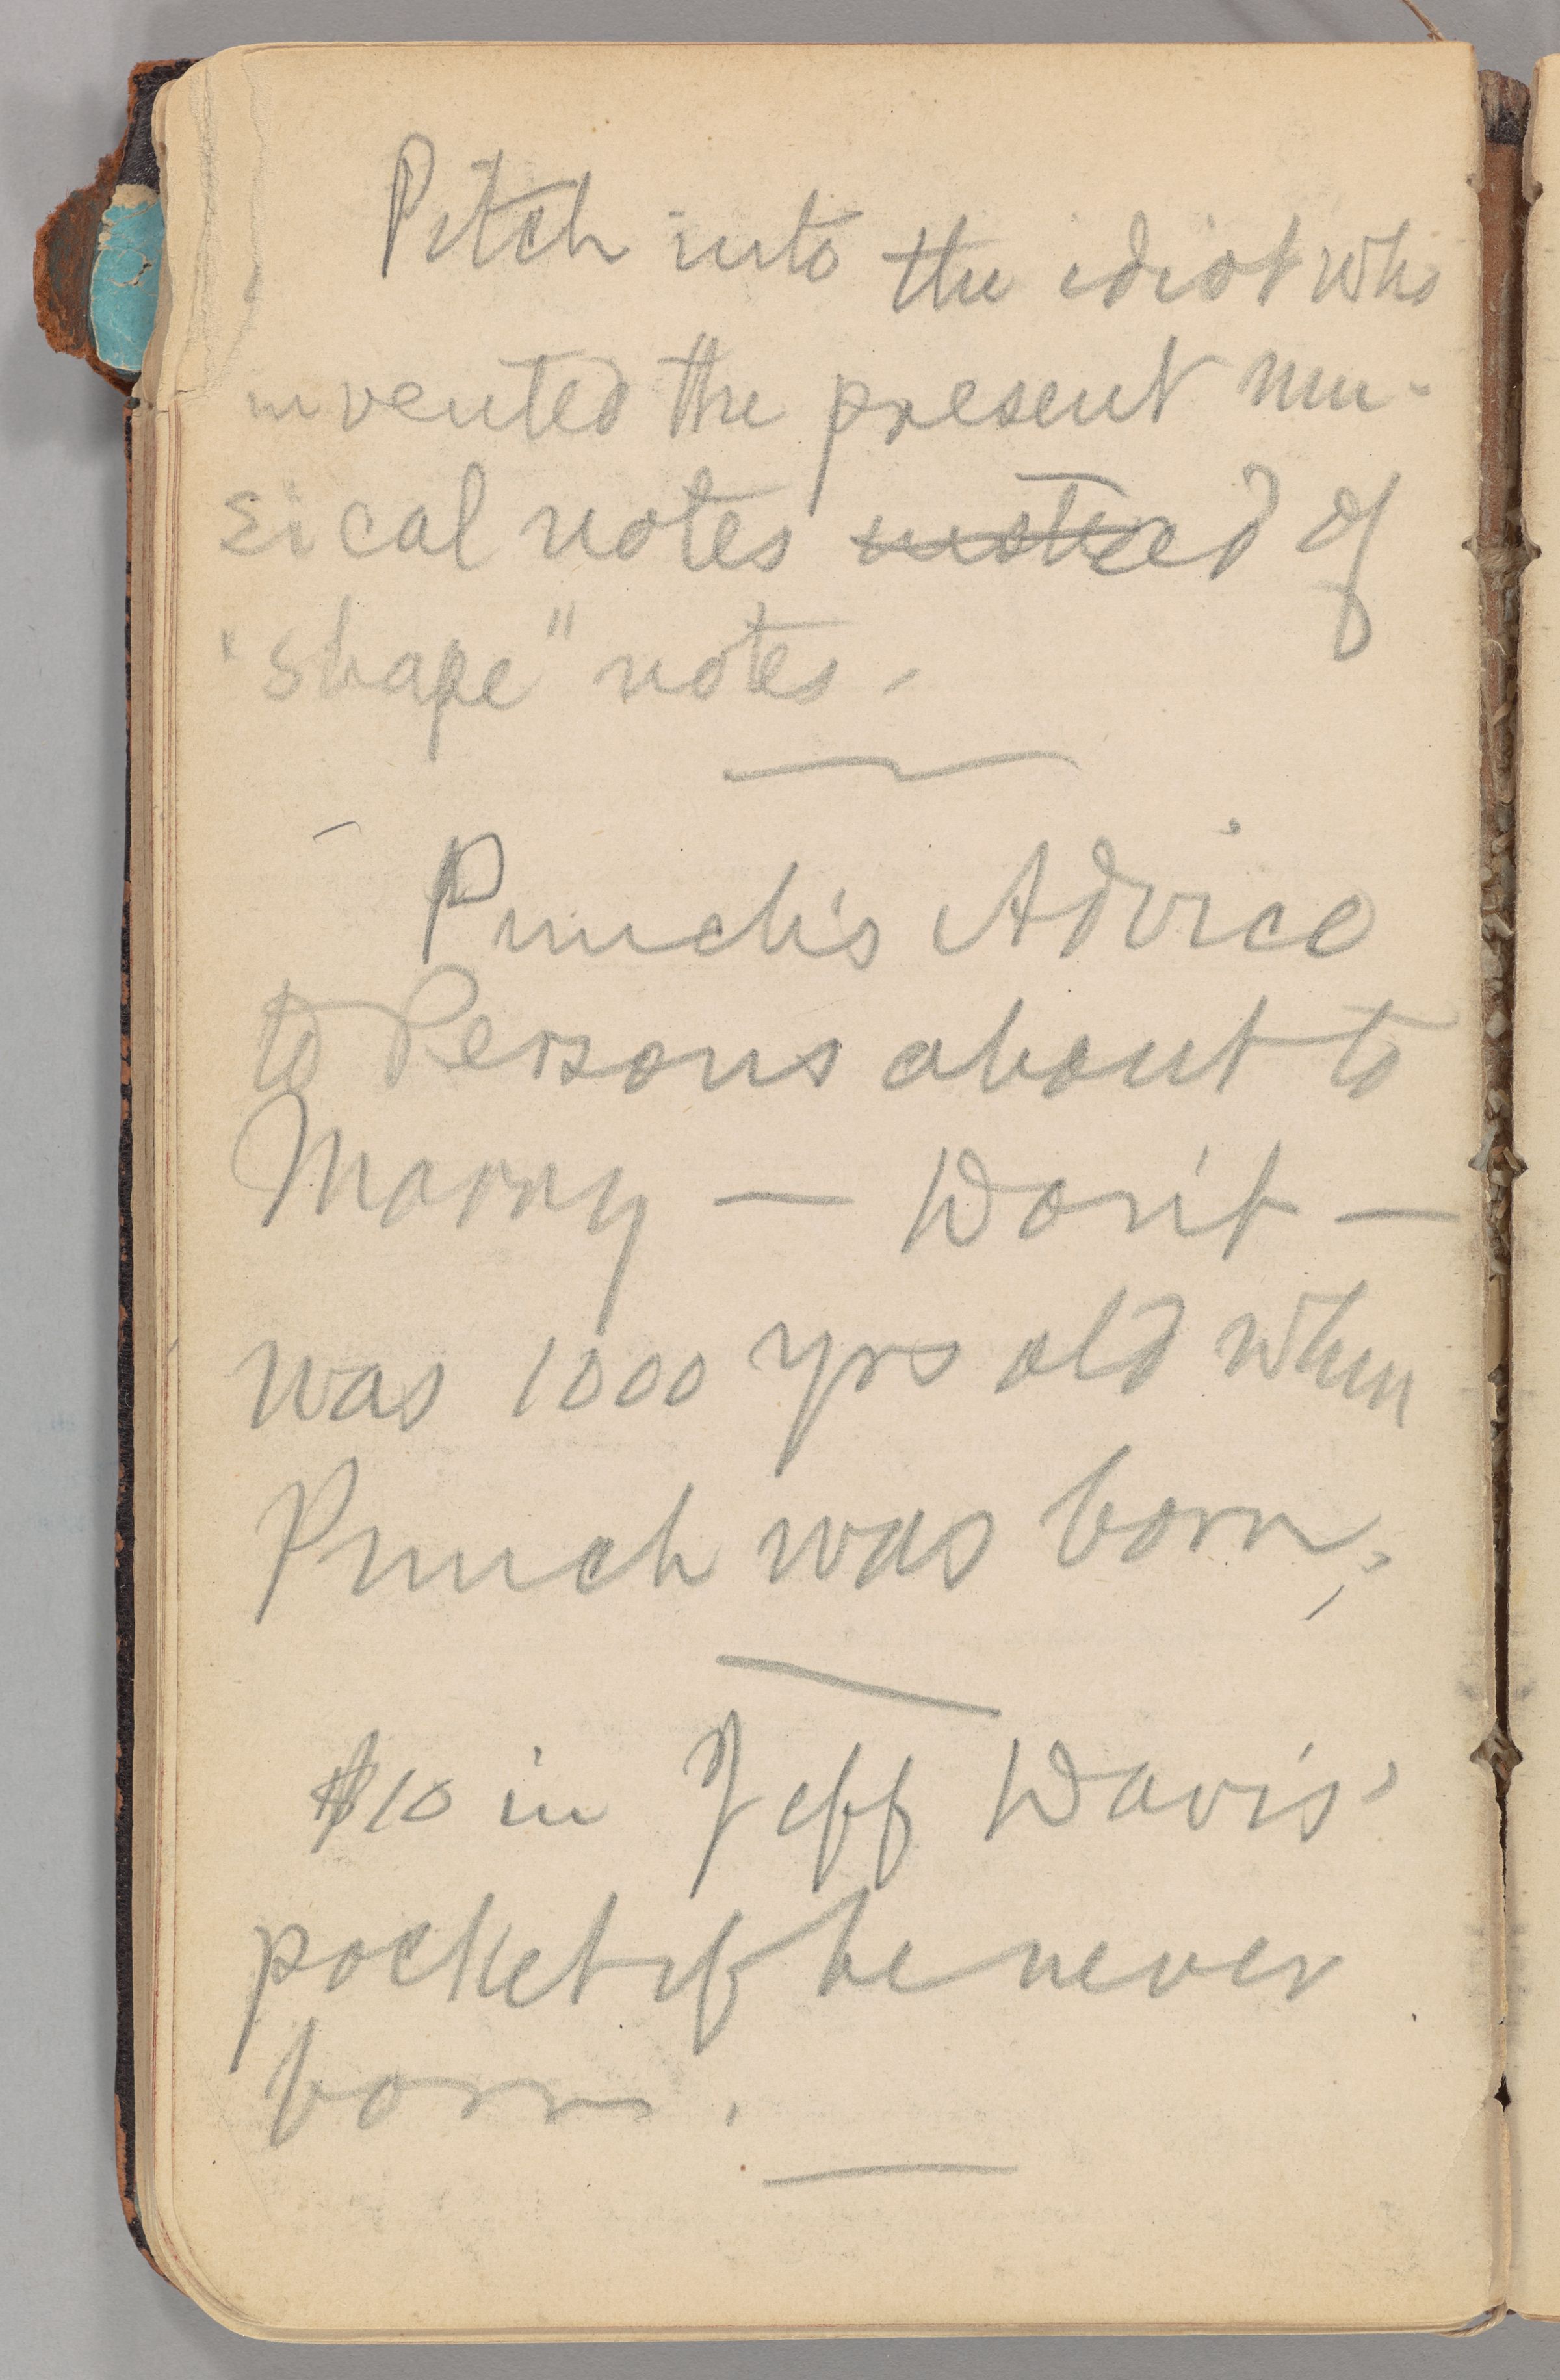 Pitch into the idiot who
invented the present mu-
sical notes insted of
"shape" notes.
Punch's Advice
to Persons about to
Marry — Don't —
was 1000 yrs old when
Punch was born.
$10 in Jeff Davis'
pocket if he never
born.